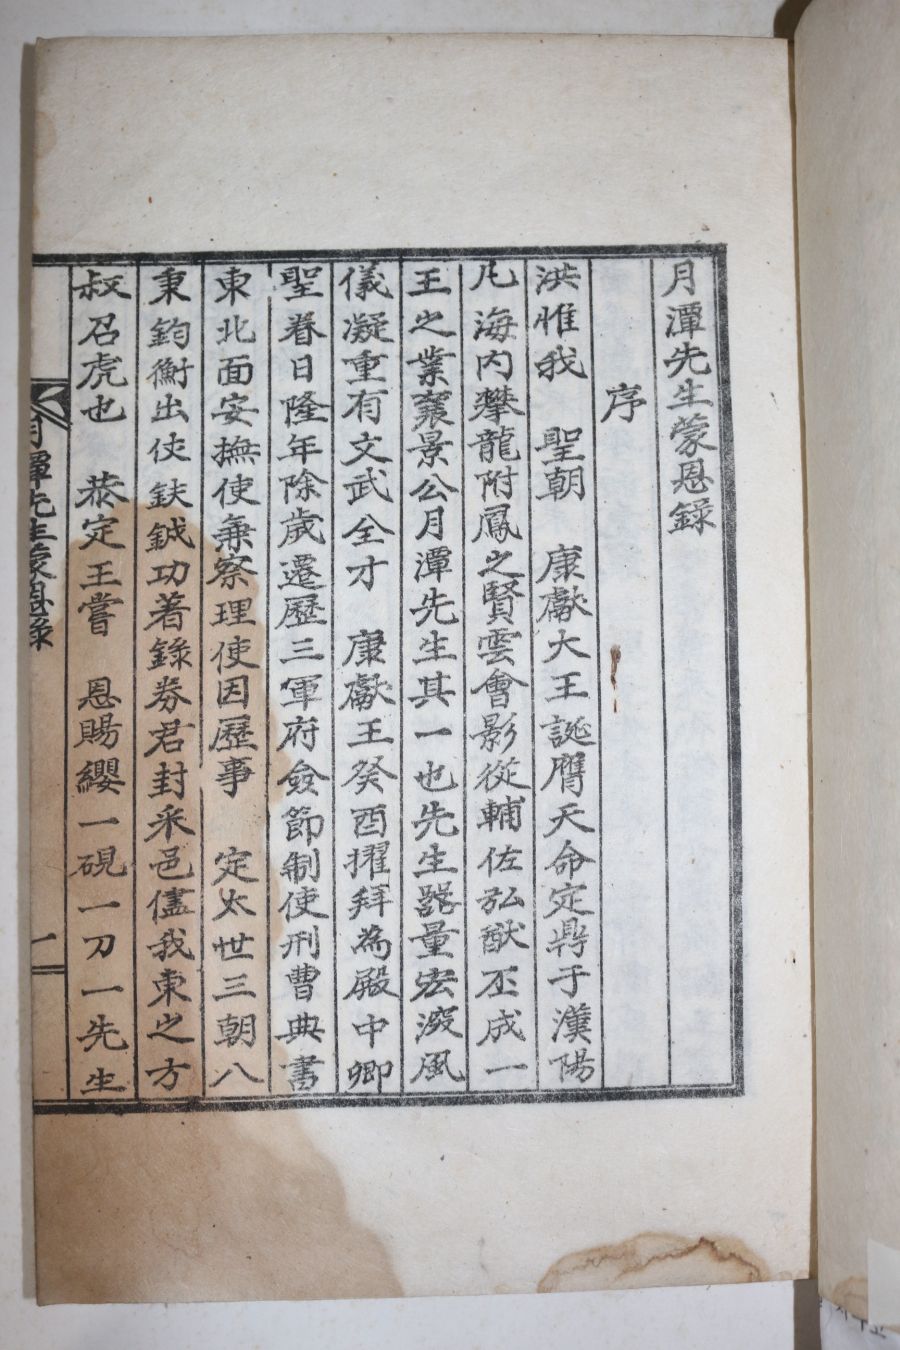 月潭先生蒙恩錄
序
洪惟我　聖朝　康獻大王誕膺天命定鼎于漢陽
凡海內攀龍附鳳之賢雲會影從輔佐弘猷丕成一
王之業襄景公月潭先生其一也先生器量宏深風
儀凝重有文武全才　康獻王癸酉擢拜為殿中卿
聖眷日隆年除歲遷歷三軍府僉節制使刑曹典書
東北面安撫使兼察理使因歷事　定太世三朝八
秉鈞衡出使鈇鉞功著錄券君封采邑儘我東之方
叔召虎也　恭定王嘗　恩賜纓一硯一刀一先生
月潭先生蒙恩錄
一